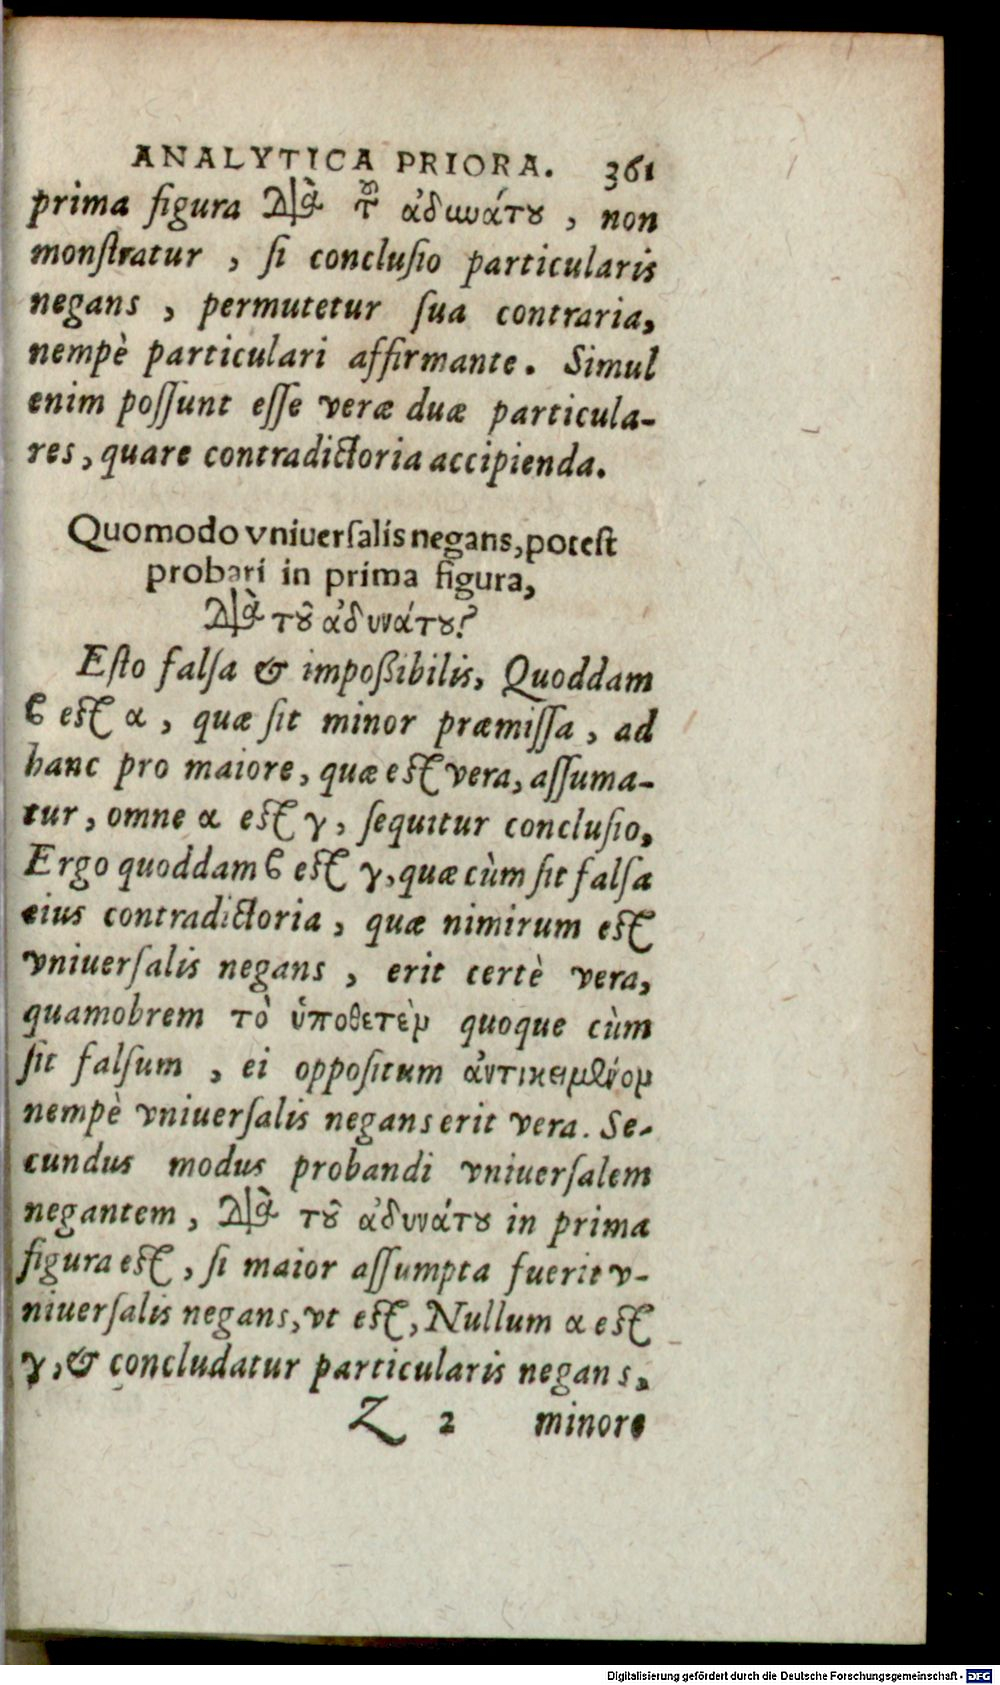 ANALYTICA PRIORA. 361
prima figura διὰ τοῦ ἀδυνάτου, non
monſtratur, ſi concluſio particularis
negans, permutetur ſua contraria,
nempè particulari affirmante. Simul
enim poſſunt eſſe veræ duæ particula-
res, quare contradictoria accipienda.
Quomodo vniuerſalis negans, poteſt
probari in prima figura,
διὰ τοῦ ἀδυνάτου?
Eſto falſa & impoßibilis, Quoddam
ϐ eſt α, quæ ſit minor præmiſſa, ad
hanc pro maiore, quæ eſt vera, aſſuma-
tur, omne α eſt γ, ſequitur concluſio,
Ergo quoddam ϐ eſt γ, quæ cùm ſit falſa
eius contradictoria, quæ nimirum eſt
vniuerſalis negans, erit certè vera,
quamobrem τὸ ὑποθετὲν quoque cùm
ſit falſum, ei oppoſitum ἀντικειμένον
nempè vniuerſalis negans erit vera. Se-
cundus modus probandi vniuerſalem
negantem, διὰ τοῦ ἀδυνάτου in prima
figura eſt, ſi maior aſſumpta fuerit v-
niuerſalis negans, vt eſt, Nullum α eſt
γ, & concludatur particularis negans,
Z 2 minore
Digitalisierung gefördert durch die Deutsche Forschungsgemeinschaft - DFG